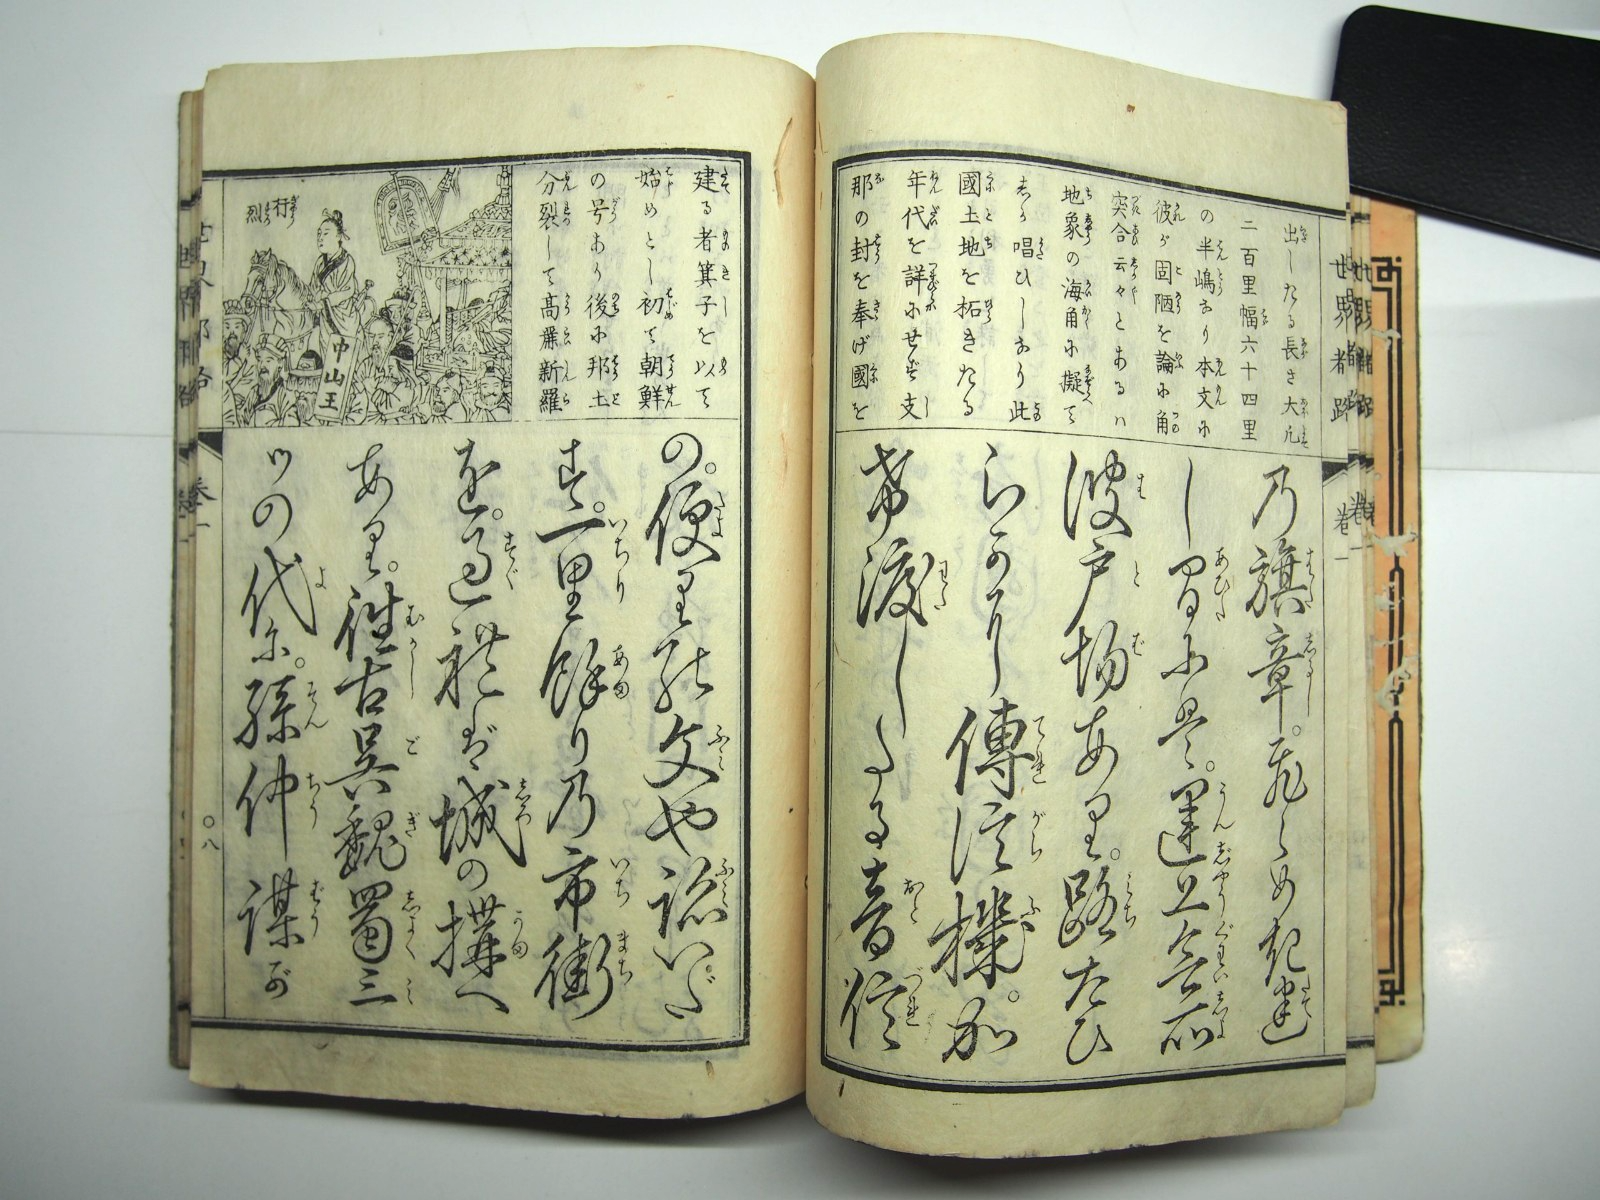 出したる長さ大凡
二百里幅六十四里
の半嶋なり本文に
彼が固陋を論に角
突合云々とあるハ
地象の海角に擬て
しか唱ひしなり此
國土地を拓きたる
年代を詳にせず支
那の封を奉げ國を
乃旗章。飛らめき建
し間に是。運上会所
波戸場あり。路たひ
らかなり傳信機。加
希渡したる音信
建る者箕子を以て
始めとし初て朝鮮
の号あり後に邦土
分裂して高麗新羅
行烈
中山王
の。便里能文や認いだ
す。一里餘り乃市街
を。過礼ば城の搆へ
あり。往古呉魏蜀三
つの代に。孫仲謀が
世界都路
巻一
〇八